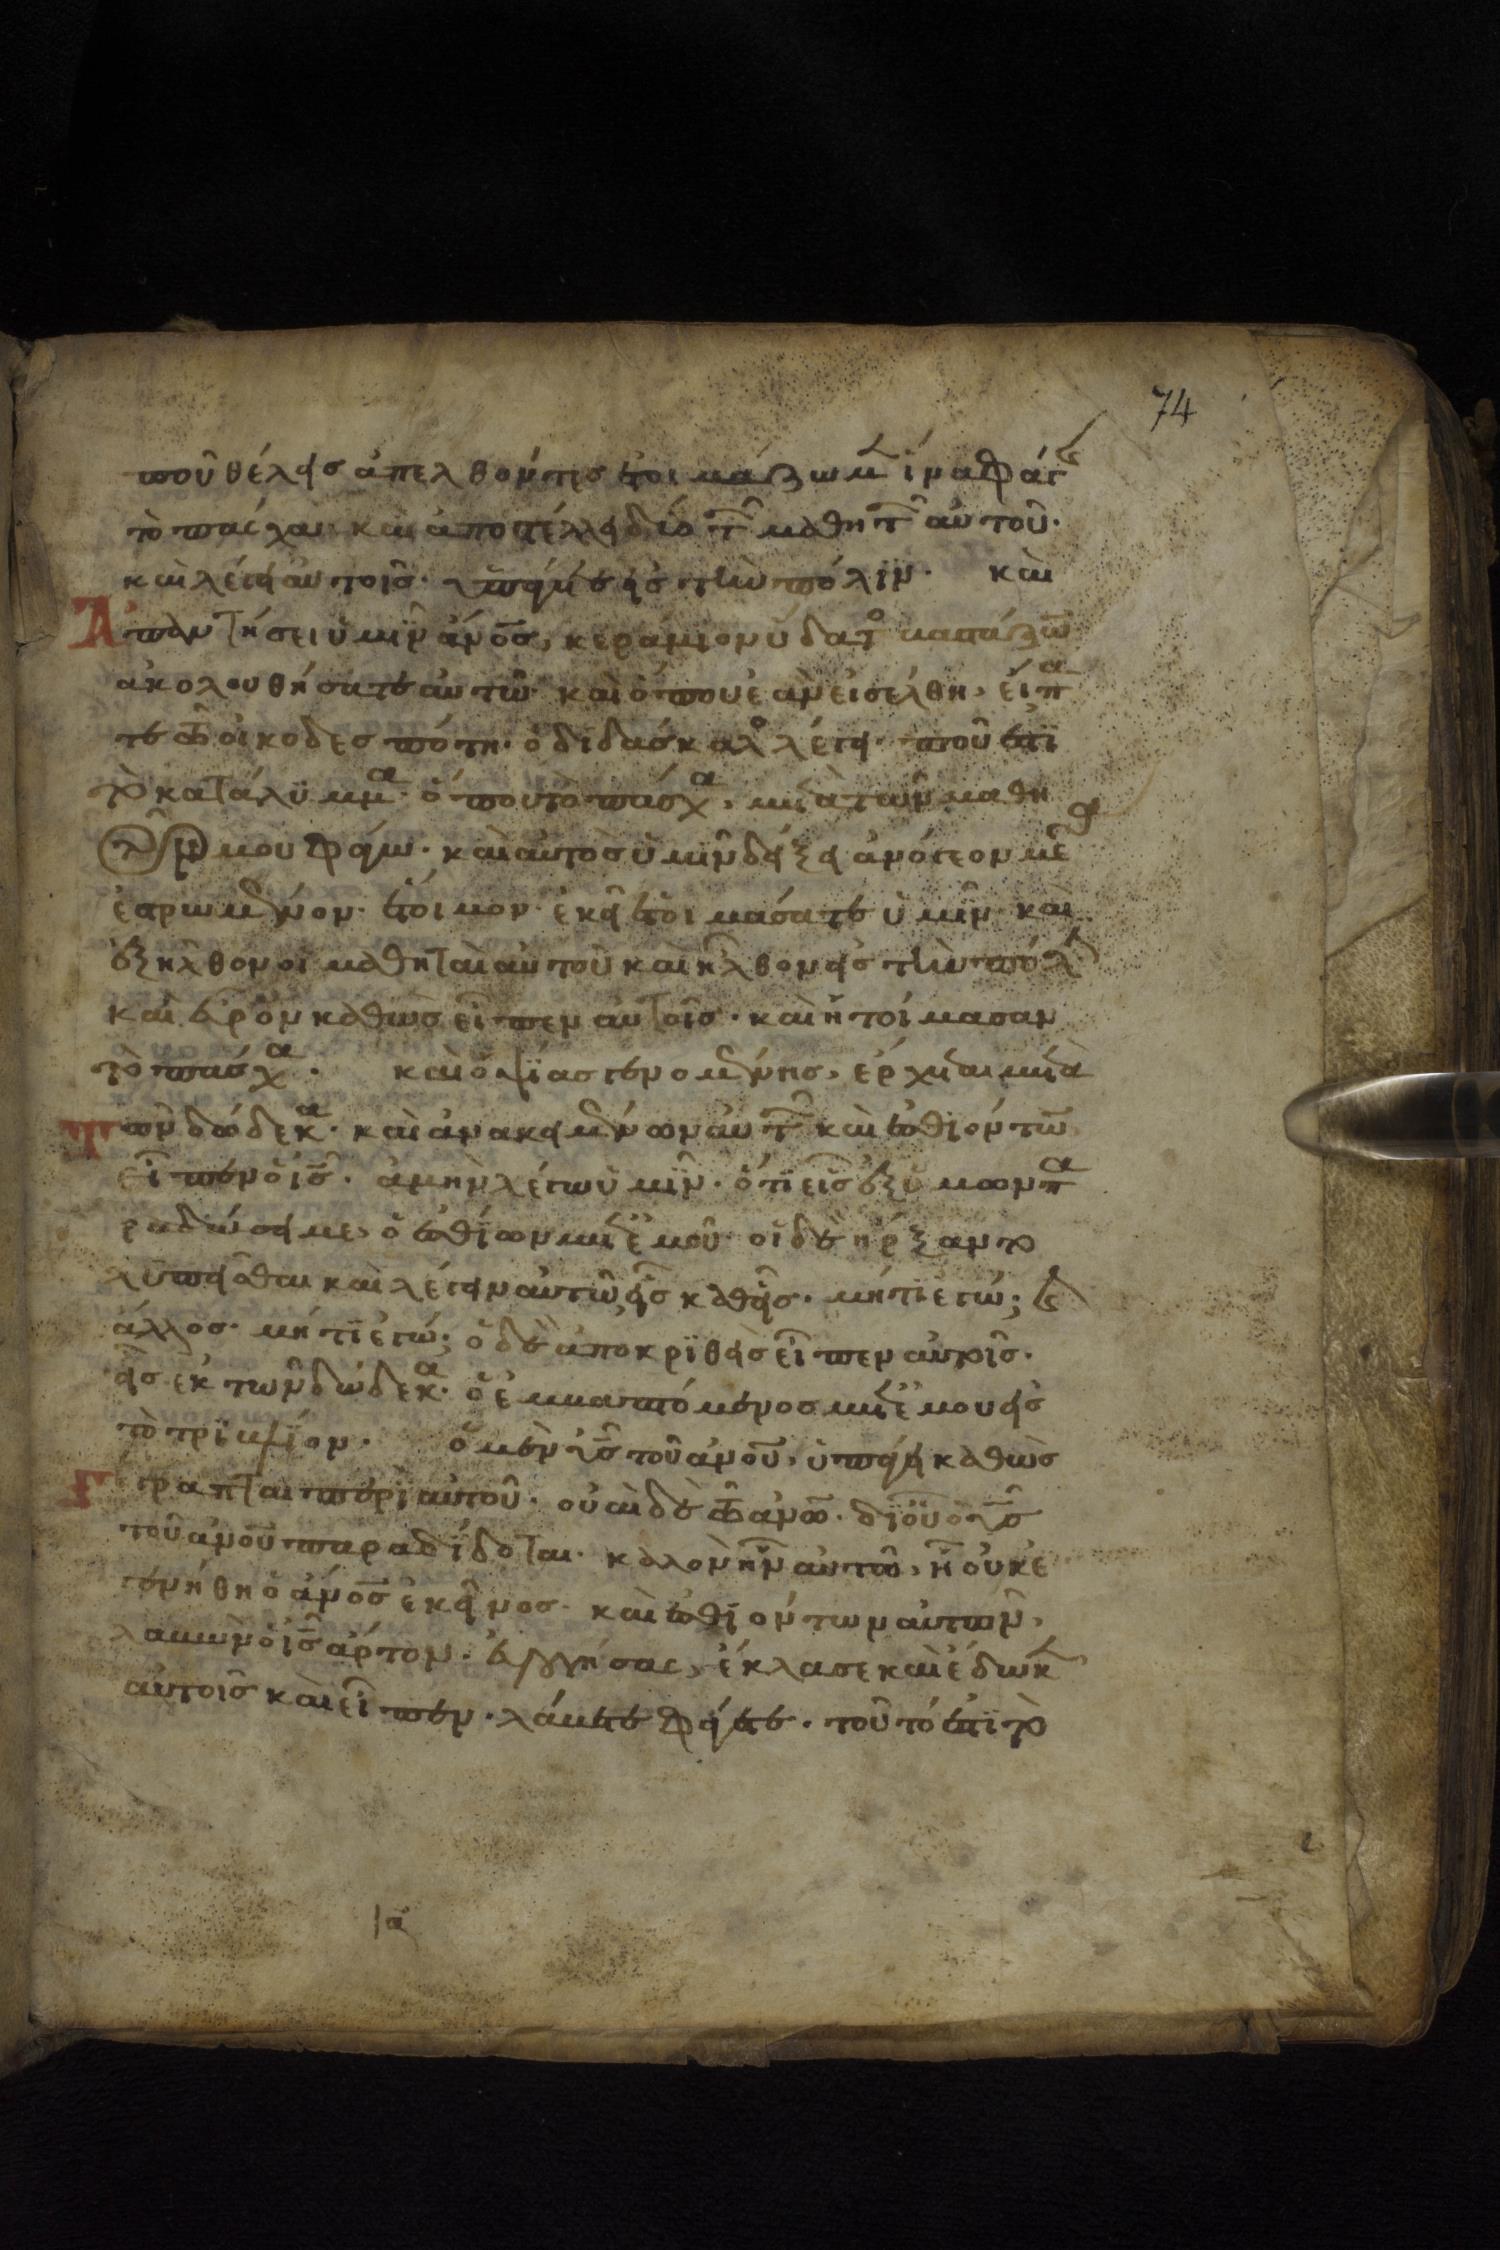 74
ποῦ θέλεις ἀπελθόντες ἑτοιμάσωμ ἵνα φάγ
τὸ πάσχα· καὶ ἀποστέλλει δύο τῶν μαθητῶν αὐτοῦ·
καὶ λέγει αὐτοῖς· ὑπάγετε εἰς τὴν πόλιν· καὶ
ἀπαντήσει ὑμῖν ἄνος, κεράμιον ὕδατος βαστάζων
ἀκολουθήσατε αὐτῶ· καὶ ὅπου ἐὰν εἰσέλθη, εἴπα
τε τῶ οἰκοδεσπότη· ὁ διδάσκαλος λέγει· ποῦ ἐστὶ
τὸ κατάλυμμα· ὅπου τὸ πάσχα, μετὰ τῶν μαθη
τῶν μου φάγω· καὶ αὐτὸς ὑμῖν δείξει ἀνώγεον μέγα
ἐστρωμένον· ἕτοιμον· ἐκεῖ ἑτοιμάσατε ὑμῖν· καὶ
ἐξῆλθον οἱ μαθηταὶ αὐτοῦ καὶ ἦλθον εἰς τὴν πόλ
καὶ εὗρον καθὼς εἶπεν αὐτοῖς· καὶ ἡτοίμασαν
τὸ πάσχα· καὶ ὀψίας γενομένης, ἔρχεται μετὰ
τῶν δώδεκα· καὶ ἀνακειμένων αὐτῶν καὶ ἐσθιόντων
εἶπεν ὁ ις· ἀμὴν λέγω ὑμῖν· ὅτι εἷς ἐξ ὑμῶν πα
ραδώσει με, ὁ ἐσθίων μετ' ἐμοῦ· οἱ δὲ ἤρξαντο
λυπεῖσθαι καὶ λέγειν αὐτῶ εἷς καθεῖς· μήτι ἐγώ; καὶ
ἄλλος· μήτι ἐγώ; ὁ δὲ ἀποκριθεὶς εἶπεν αὐτοῖς·
εἷς ἐκ τῶν δώδεκα· ὁ ἐμβαπτόμενος μετ' ἐμοῦ εἰς
τὸ τρύβλιον· ὁ μὲν υς τοῦ ανου, ὑπάγει καθὼς
γέγραπται περὶ αὐτοῦ· οὐαὶ δὲ τῶ ανω· δι' οὗ ὁ υς
τοῦ ανου παραδίδοται· καλὸν ἦν αὐτῶ, εἰ οὐκ ἐ
γενήθη ὁ ανος ἐκεῖνος· καὶ ἐσθιόντων αὐτῶν,
λαβὼν ὁ ις ἄρτον· εὐλογήσας, ἔκλασε καὶ ἔδωκ
αὐτοῖς καὶ εἶπεν· λάβετε φάγετε· τοῦτό ἐστι τὸ
ια